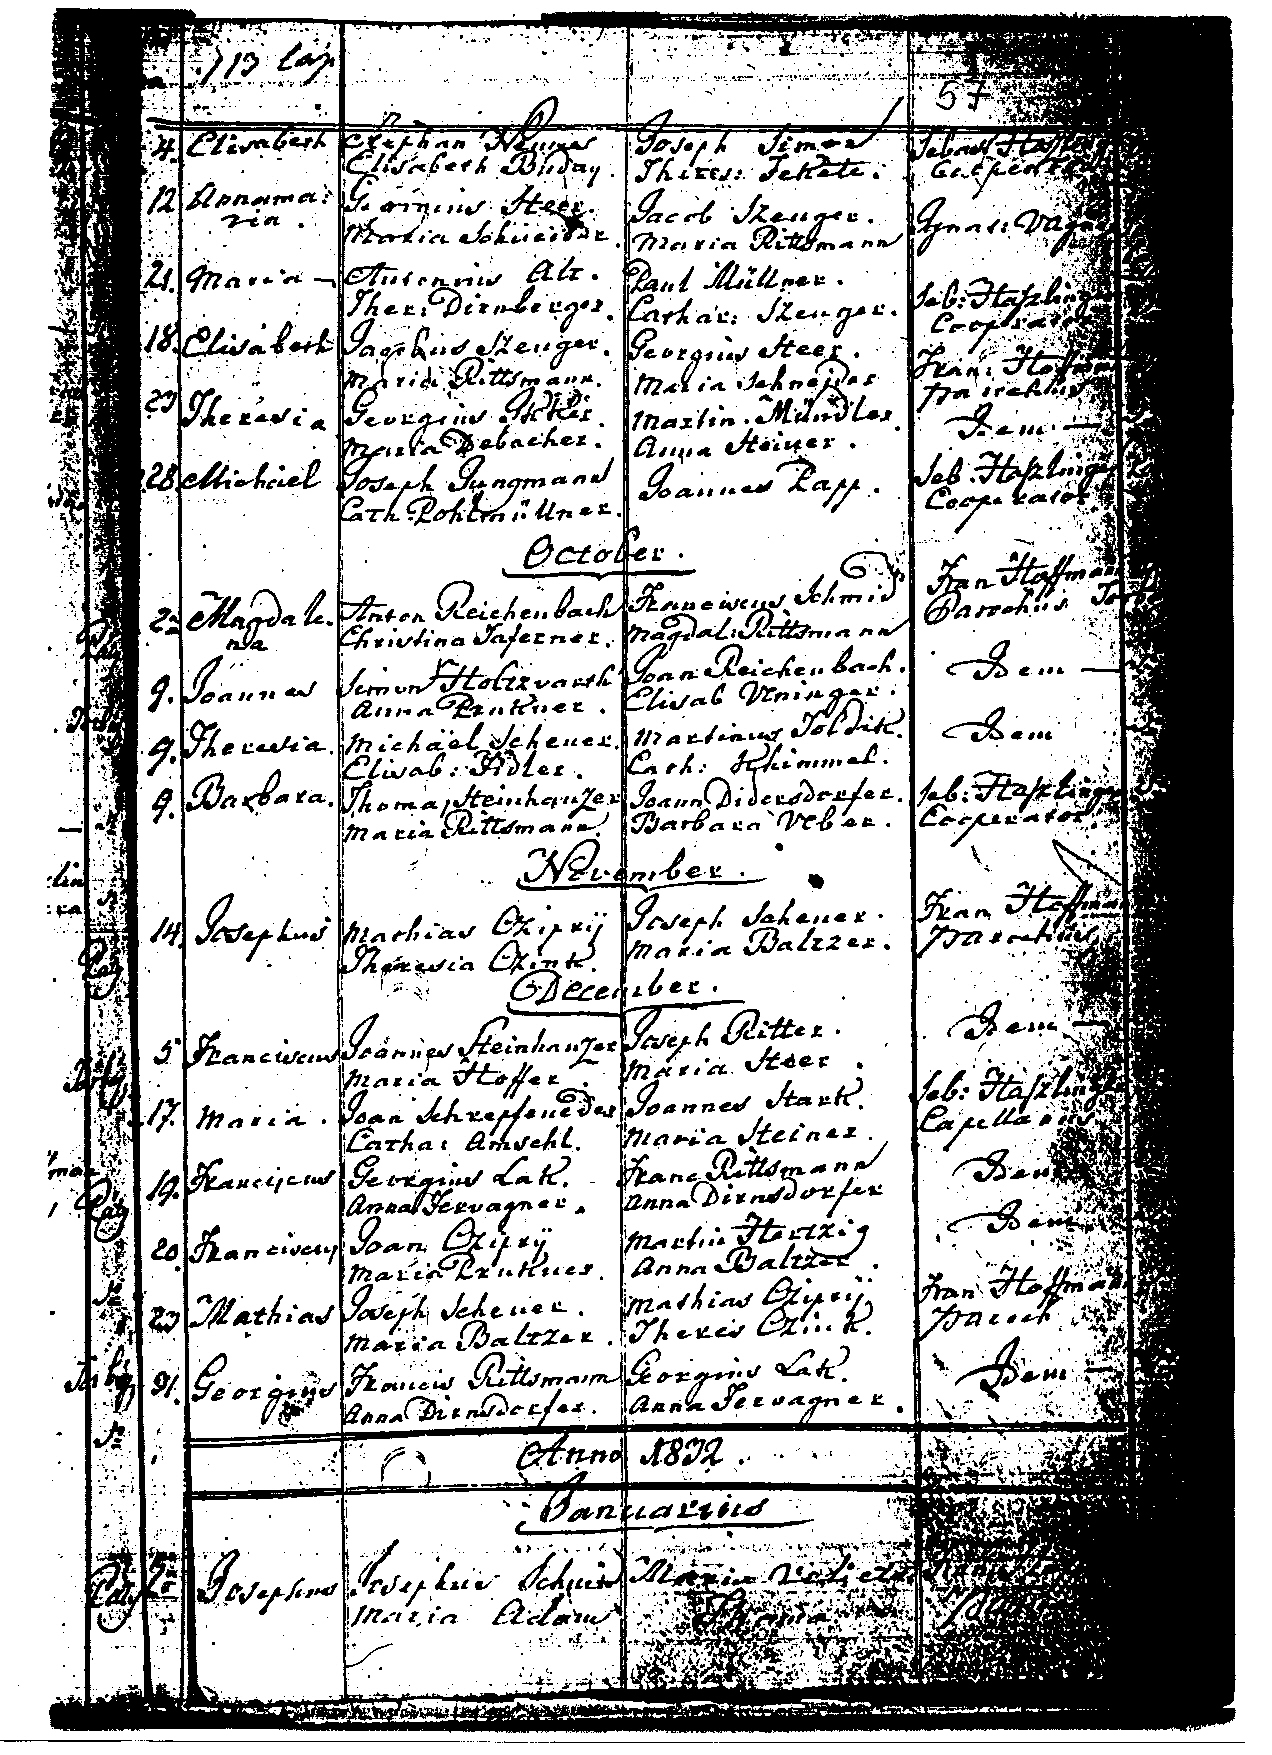 713 lap
57
4. Elisabeth Stephan Elisabeth Buday. Joseph Simon Theres: Fekete: Cooperator
12 Annamaria. Georgius Steer. Maria Schneider. Jacob Szenger. Maria Rittsmann Ignati: Vagner
21. Maria — Antonius Alt. Ther: Dirnberger. Paul Müllner. Cathar: Szenger. Seb: Haszlinger Cooperator
18. Elisabeth Josephus Szenger. Maria Rittsmann. Georgius Steer. Maria Schnejder Fran: Hoffmann Parochus
23 Theresia Georgius Maria Debacher. Martin Mündler. Anna Steiner. Idem —
28 Michael Joseph Jungmann Cath: Pohlmüllner. Joannes Papp. Seb. Haszlinger Cooperator
October.
2 Magdalena Anton Reichenbach Christina Taferner. Franciscus Schmid Magdal: Rittsmann Fran Hoffman Parochus
9. Joannes Simon Holtzvarth Anna Prukner. Joan Reichenbach. Elisab Uninger. Idem —
9. Theresia. Michäel Scheuer. Elisab: Adler. Martinus Toldik. Cath: Schimmel. Idem
9. Barbara. Thomas Steinhauzer Maria Rittsmann Joann Didersdorfer. Barbara Veber. Seb: Haszlinger Cooperator.
November.
14 Josephus Mathias Cziprÿ Theresia Czink. Joseph Scheuer. Maria Baltzer. Fran Hoffman Parochus
December.
5 Franciscus Joannes Steinhauzer Maria Hoffer. Joseph Ritter. Maria Steer. Idem —
17. Maria. Joan Schrepfeneder Cathar: Amschl. Joannes Stark. Maria Steiner. Seb: Haszlinger Capellanus
19. Franciscus Georgius Lak. Anna Fervagner. Franc Rittsmann Anna Dirnsdorfer Idem
20 Franciscus Joan Cziprÿ Maria Prukner. Martin Hertzig Anna Baltzer. Idem
23 Mathias Joseph Scheuer. Maria Baltzer. Mathias Cziprÿ Theres Czink. Fran Hoffmann Paroch
31. Georgius Francis Rittsmann Anna Dirnsdorfer. Georgius Lak. Anna Fervagner. Idem —
Anno 1832.
Januarius
Josephus Josephus Maria Adam Maria